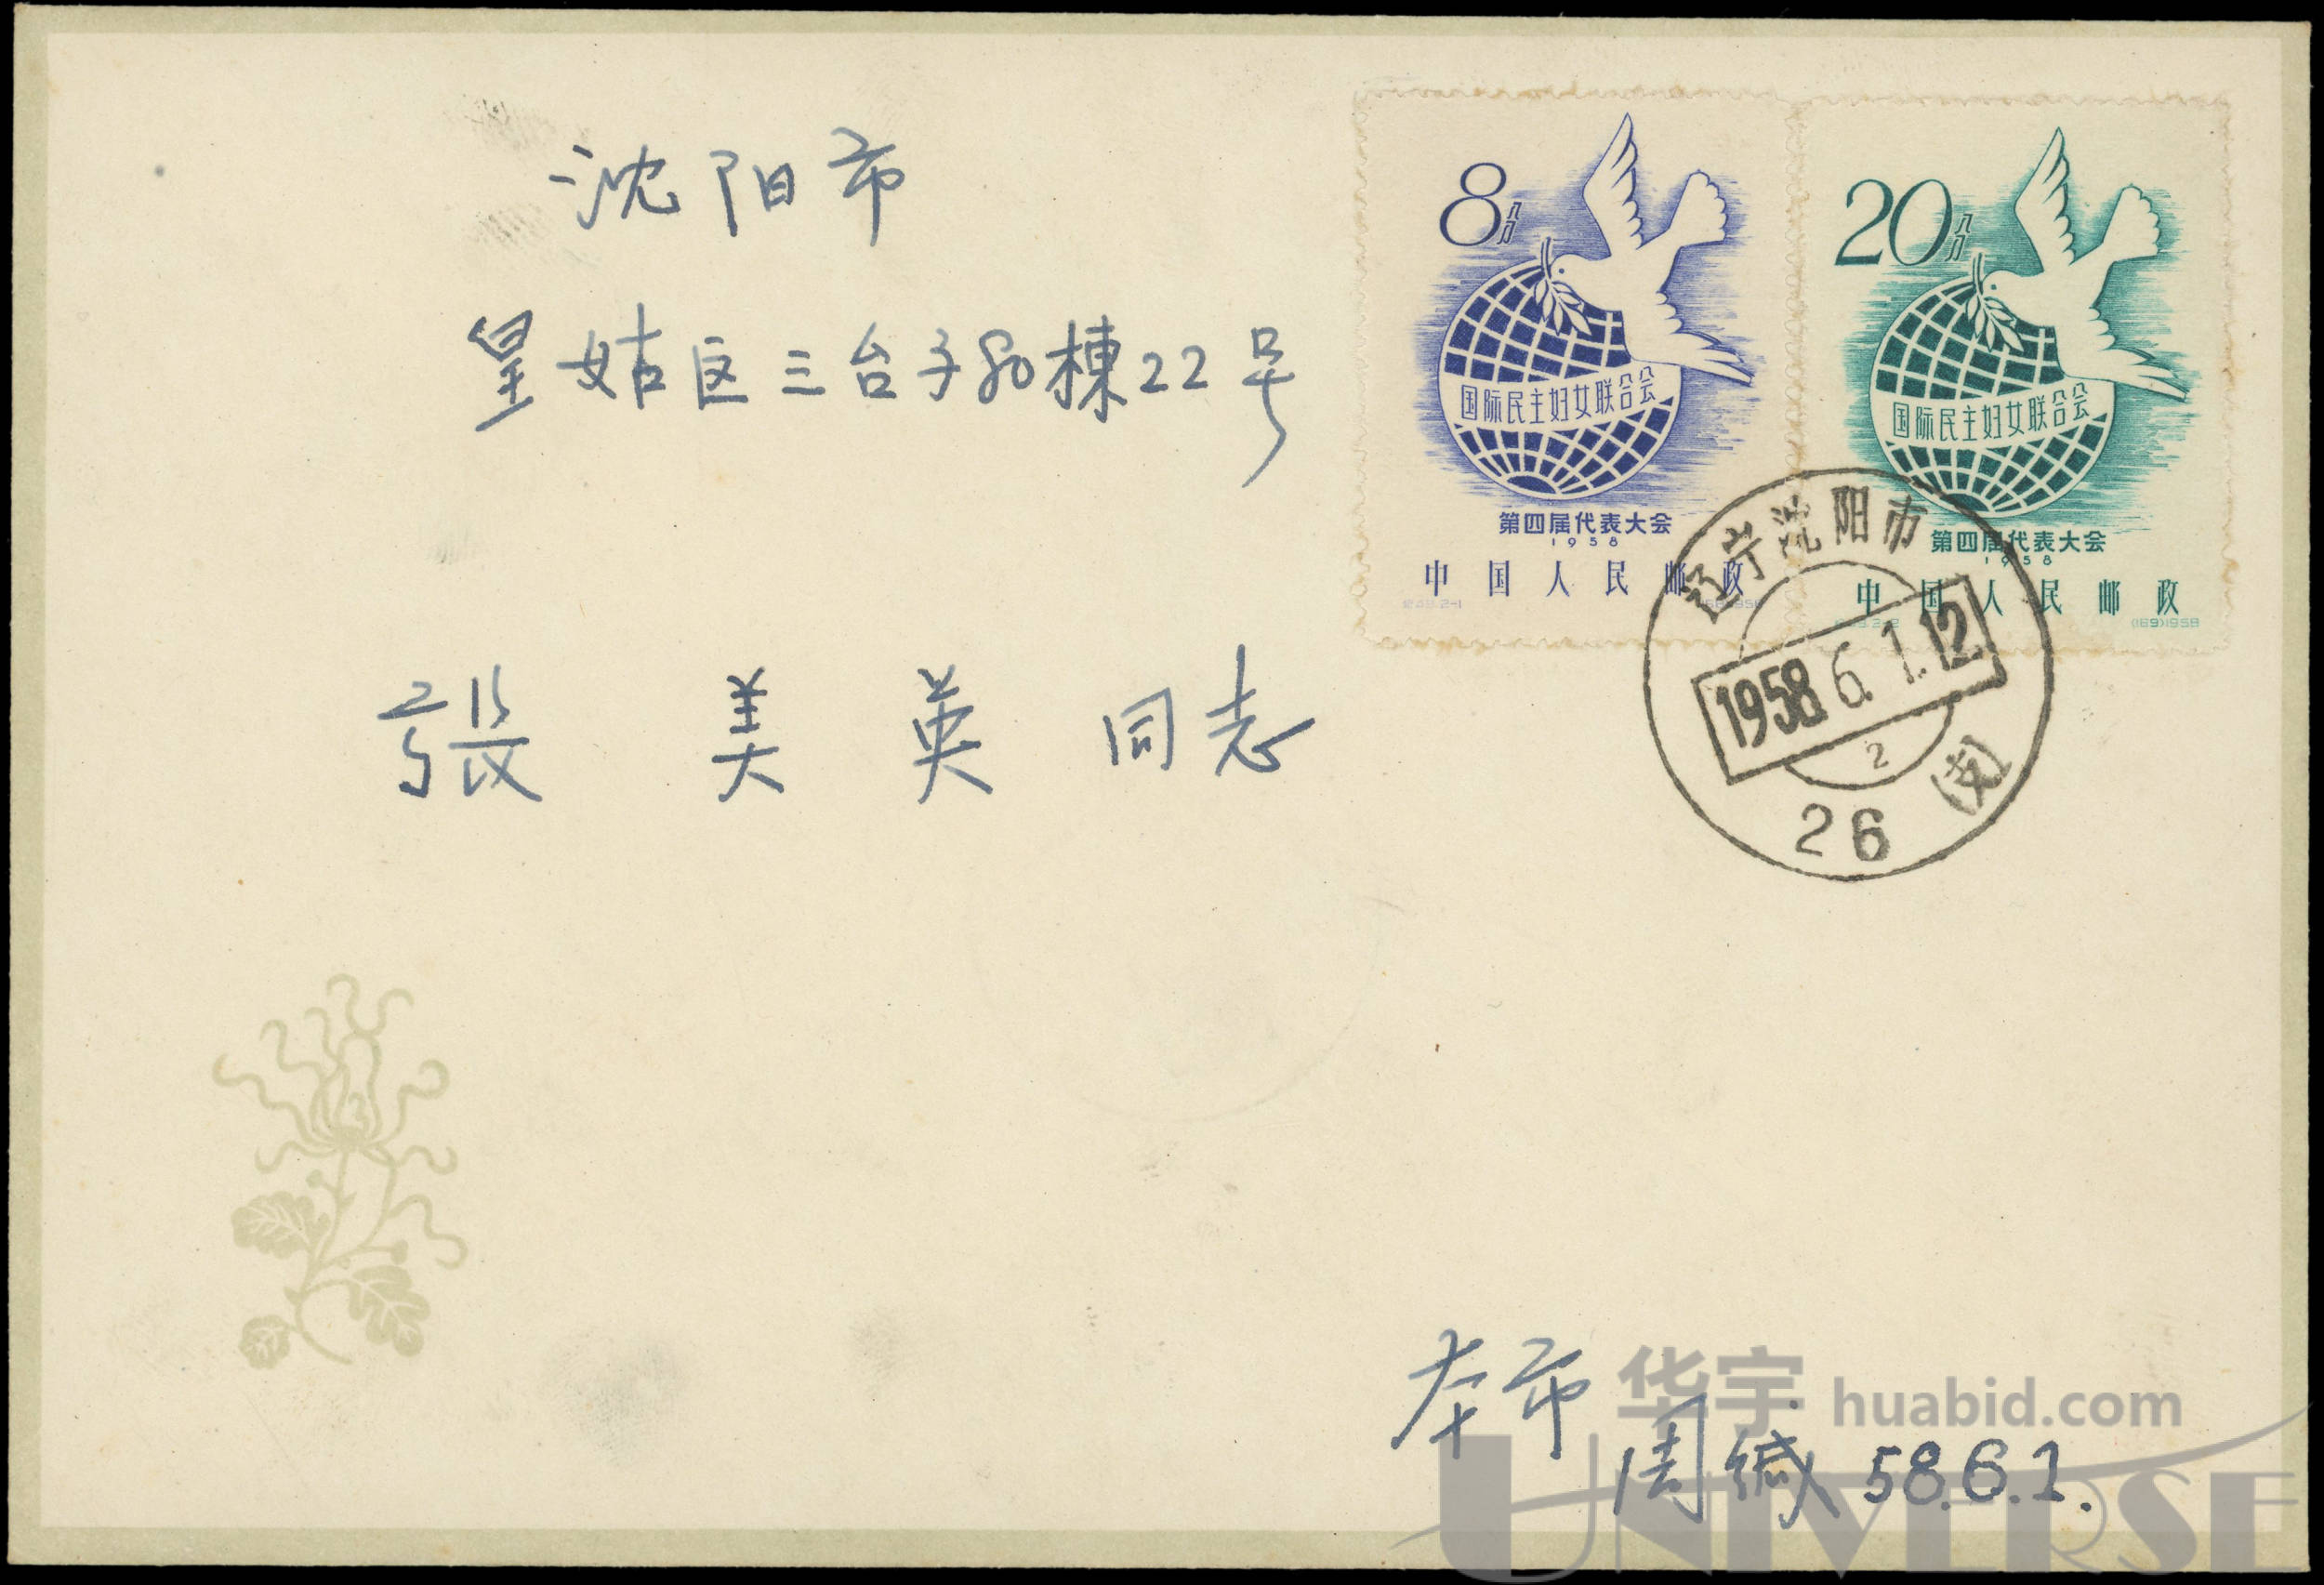 沈阳市
皇姑区三台子80栋22号
張美英同志
8分
国际民主妇女联合会
第四届代表大会
1958
中国人民邮政
20分
国际民主妇女联合会
第四届代表大会
1958
中国人民邮政
(169)1958
辽宁沈阳市
1958.6.1.12
2
26 (支)
本市
周缄 58.6.1.
华宇 huabid.com
UNIVERSE